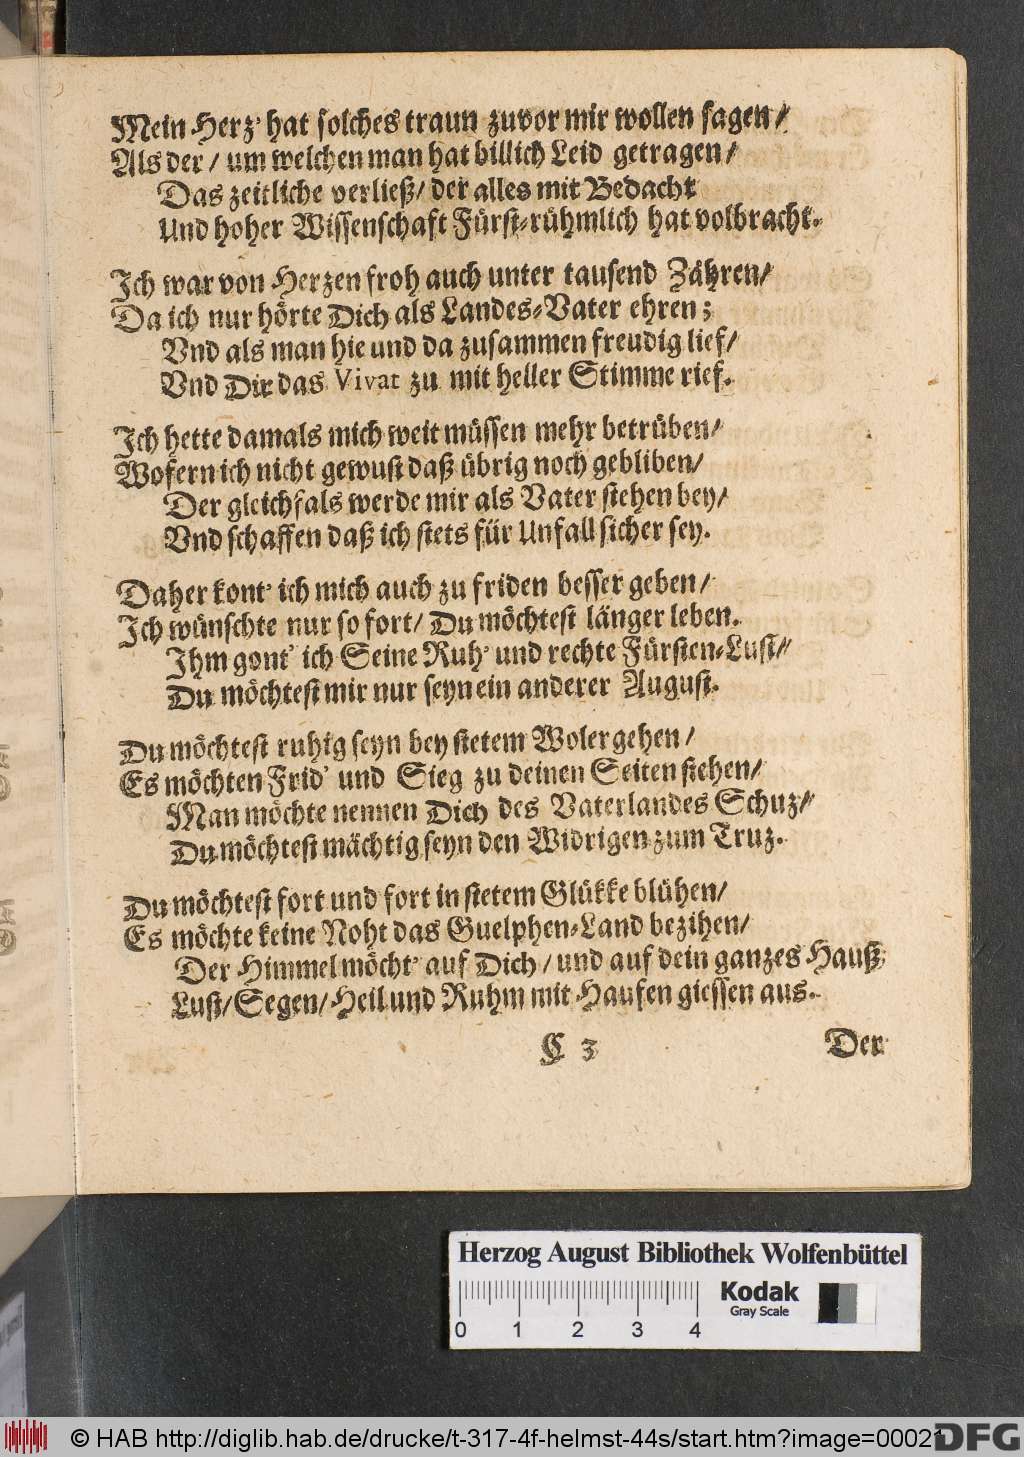 Mein Herz' hat solches traun zuvor mir wollen sagen/
Als der/ um welchen man hat billich Leid getragen/
Das zeitliche verließ/ der alles mit Bedacht
Und hoher Wissenschaft Fürst-rühmlich hat volbracht.
Ich war von Herzen froh auch unter tausend Zähren/
Da ich nur hörte Dich als Landes-Vater ehren;
Vnd als man hie und da zusammen freudig lief/
Vnd Dir das Vivat zu mit heller Stimme rief.
Ich hette damals mich weit müssen mehr betrüben/
Wofern ich nicht gewust daß übrig noch gebliben/
Der gleichfals werde mir als Vater stehen bey/
Vnd schaffen daß ich stets für Unfall sicher sey.
Daher kont' ich mich auch zu friden besser geben/
Ich wünschte nur so fort/ Du möchtest länger leben.
Ihm gont' ich Seine Ruh' und rechte Fürsten-Lust/
Du möchtest mir nur seyn ein anderer August.
Du möchtest ruhig seyn bey stetem Wolergehen/
Es möchten Frid' und Sieg zu deinen Seiten stehen/
Man möchte nennen Dich des Vaterlandes Schuz/
Du möchtest mächtig seyn den Widrigen zum Truz.
Du möchtest fort und fort in stetem Glükke blühen/
Es möchte keine Noht das Guelphen-Land bezihen/
Der Himmel möcht' auf Dich/ und auf dein ganzes Hauß
Lust/ Segen/ Heil und Ruhm mit Haufen giessen aus.
C 3 Der
Herzog August Bibliothek Wolfenbüttel
Kodak
Gray Scale
0 1 2 3 4
© HAB http://diglib.hab.de/drucke/t-317-4f-helmst-44s/start.htm?image=00021
DFG